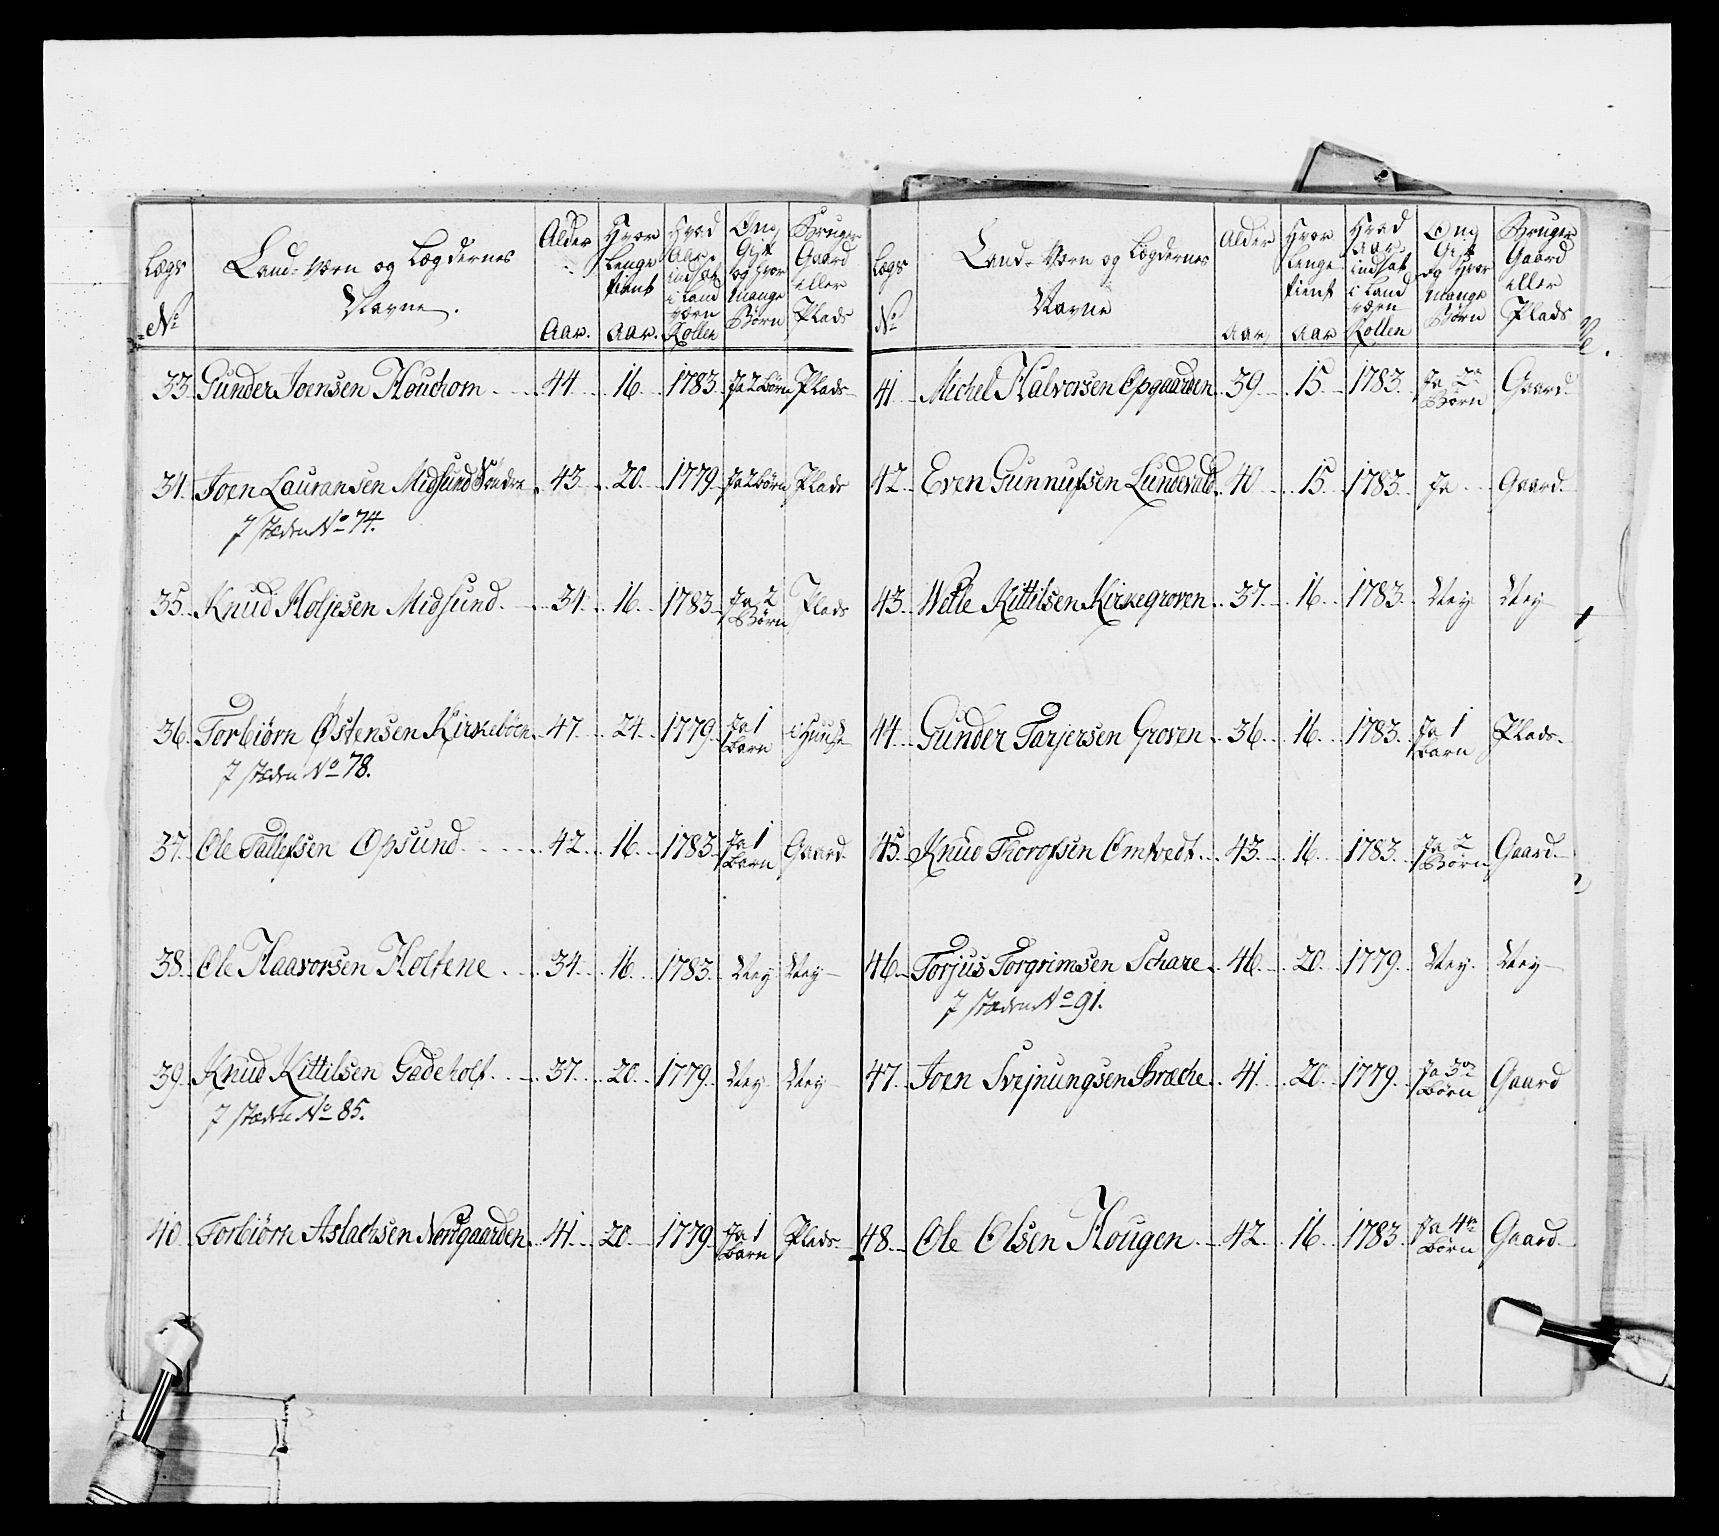 Lægs No | Land-Værn og Lægdernes Navne. | Alder Aar. | Hvor Lenge tient Aar. | Hvad Aar indsat i Land værn Rollen | Om Gift og hvor mange Børn | Bruger Gaard eller Plads
33. Gunder Joensen Houchom 44 16. 1783. Ja 2 Børn Plads
34. Joen Lauransen Midsund Søndre 43. 20. 1779. Ja 2 børn Plads
J stæden No 74.
35. Knud Holjesen Midsund 34. 16. 1783. Ja 2 Børn Plads
36. Torbiørn Østensen Kirkebøen 47. 24. 1779. Ja 1 barn i Huuse
J stæden No 78.
37. Ole Tallefsen Opsund 42. 16. 1783. Ja 1 barn Gaard
38. Ole Haavorsen Holtene 34. 16. 1783. Ney Ney
39. Knud Kittilsen Gadeholt 37. 20. 1779. Ney Ney
J stæden No 85.
40. Torbiørn Aslachsen Nordgaarden 41. 20. 1779. Ja 1 barn Plads
Lægs No | Land-Værn og Lægdernes Navne | Alder Aar | Hvor Lenge tient Aar | Hvad Aar indsat i Land værn Rollen | Om Gift og Hvor mange Børn | Bruger Gaard eller Plads
41. Michel Halvorsen Opgaarden 39. 15. 1783. Ja 2 Børn Gaard
42. Even Gunnufsen Lundevald 40. 15. 1783. Ja Gaard
43. Wetle Kittilsen Kirkegroven 37. 16. 1783. Ney Ney
44. Gunder Tarjersen Groven 36. 16. 1783. Ja 1 barn Plads
45. Knud Thorofsen Omtvedt 43. 16. 1783. Ja 2 Børn Gaard
46. Torjus Torgrimsen Schare 46. 20. 1779. Ney Ney
J stæden No 91.
47. Joen Svejnungsen Bræche 41. 20. 1779. Ja 3 Børn Gaard
48. Ole Olsen Hougen 42. 16. 1783. Ja 4 Børn Gaard